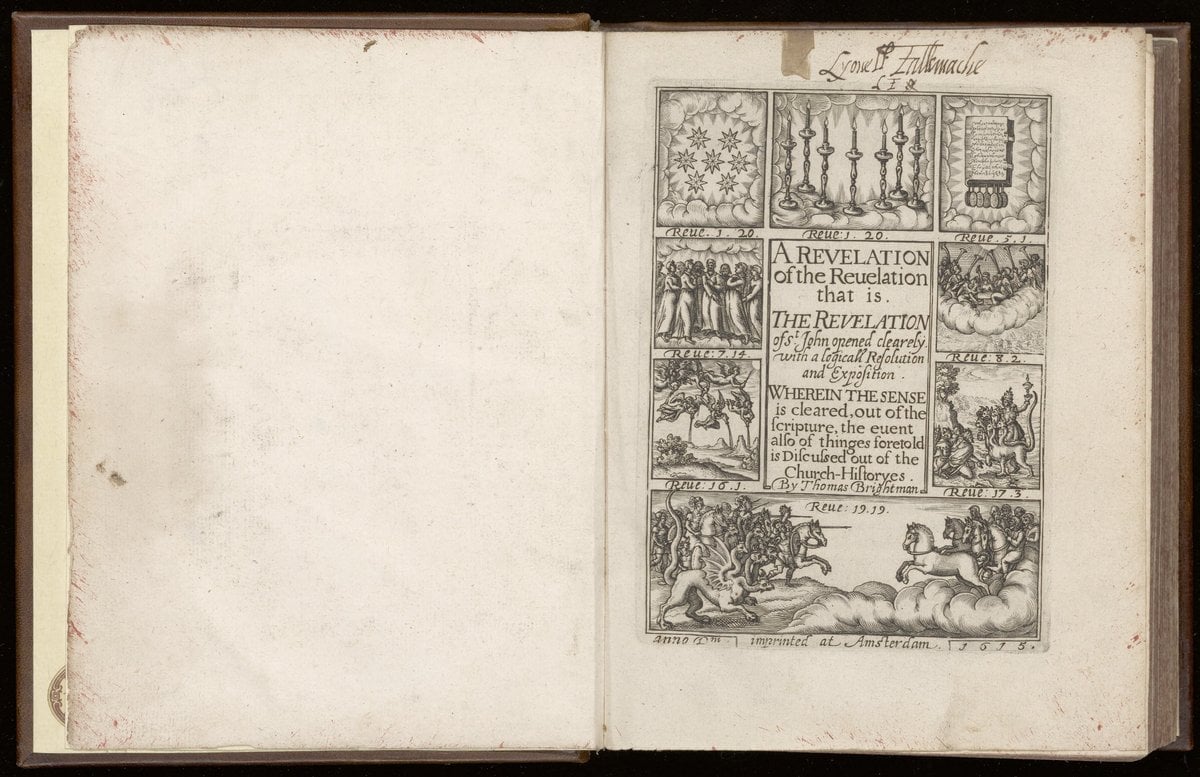 Tallemache
Reve. 1. 20.
Reve: 1. 20.
Reve. 5. 1.
Reve: 7. 14.
Reve: 8. 2.
A REVELATION
of the Reuelation
that is.
THE REVELATION
of St. John opened clearely
with a logicall Reſolution
and Expoſition.
WHEREIN THE SENSE
is cleared, out of the
ſcripture, the euent
alſo of thinges foretold
is Diſcuſſed out of the
Church-Hiſtoryes.
By Thomas Brightman.
Reue: 16. 1.
Reve: 17. 3.
Reve: 19. 19.
anno Dm. imprinted at Amſterdam. 1615.